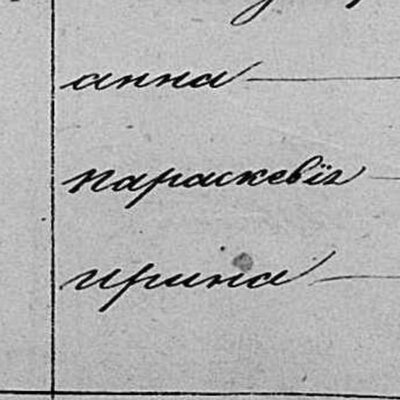 анна
параскевіа
ирина